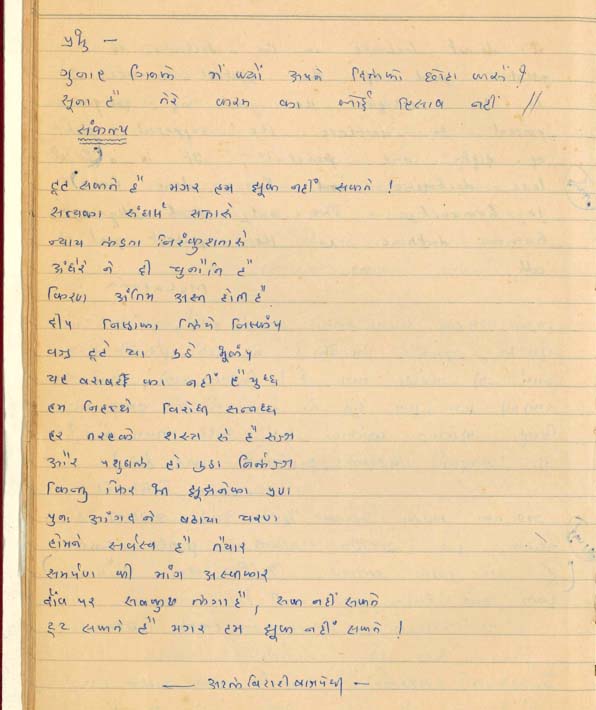 प्रभु –
गुनाह गिनके में क्यों अपने दिलको छोटा करूँ?
सूना है तेरे करम का कोई हिसाब नहीं //
संकल्प
टूट सकते हैं मगर हम झूक नहीं सकते !
सत्यका संघर्ष सत्तासे
न्याय लडता निरंकुशतासे
अंधेरे ने दी चुनौति है
किरण अंतिम अस्त होती है
दीप निष्ठाका लिये निष्कंप
वज्र टूटे या उठे भूकंप
यह बराबरी का नहीं है युध्ध
हम निहथ्थे विरोधी सन्नध्ध
हर तरहके शस्त्र से है सज्ज
और पशुबल हो उठा निर्लज्ज
किन्तु फिर भी झूझनेका प्रण
पुनः अंगद ने बढाया चरण
होमने सर्वस्व है तैयार
समर्पण की मांग अस्वीकार
दाँव पर सबकुछ लगा है, रूक नहीं सकते
टूट सकते हैं मगर हम झूक नहीं सकते !
— अटल बिहारी बाजपेयी —